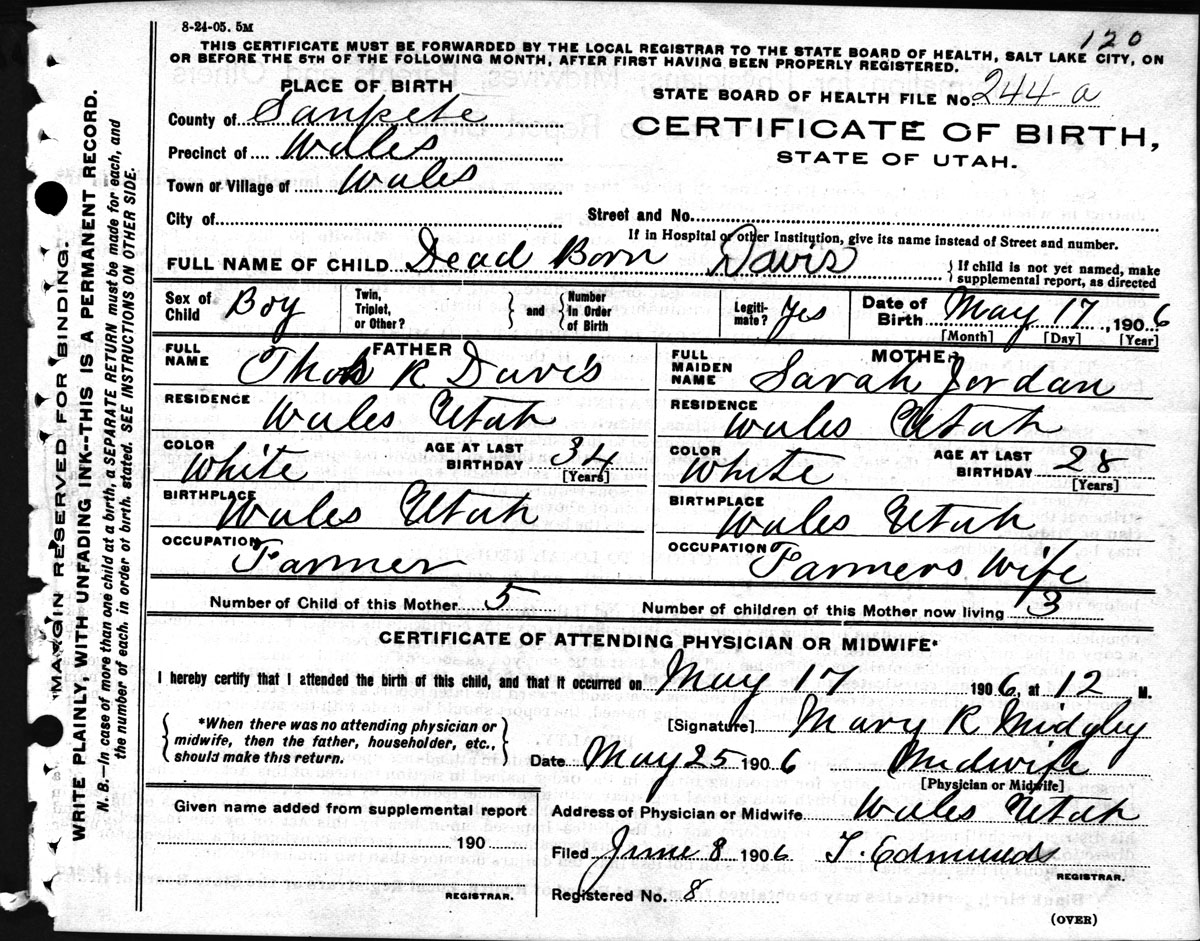 8-24-05. 5M
120
THIS CERTIFICATE MUST BE FORWARDED BY THE LOCAL REGISTRAR TO THE STATE BOARD OF HEALTH, SALT LAKE CITY, ON
OR BEFORE THE 5TH OF THE FOLLOWING MONTH, AFTER FIRST HAVING BEEN PROPERLY REGISTERED.
PLACE OF BIRTH
STATE BOARD OF HEALTH FILE No. 244-a
County of Sanpete
CERTIFICATE OF BIRTH,
Precinct of Wales
STATE OF UTAH.
Town or Village of Wales
City of
Street and No.
If in Hospital or other Institution, give its name instead of Street and number.
FULL NAME OF CHILD Dead Born Davis
If child is not yet named, make
supplemental report, as directed
Sex of
Child Boy
Twin,
Triplet,
or Other?
and
Number
In Order
of Birth
Legiti-
mate? Yes
Date of
Birth May 17, 1906
[Month] [Day] [Year]
FATHER
FULL
NAME Thos R Davis
MOTHER
FULL
MAIDEN
NAME Sarah Jordan
RESIDENCE
Wales Utah
RESIDENCE
Wales Utah
COLOR
White
AGE AT LAST
BIRTHDAY 34
[Years]
COLOR
White
AGE AT LAST
BIRTHDAY 28
[Years]
BIRTHPLACE
Wales Utah
BIRTHPLACE
Wales Utah
OCCUPATION
Farmer
OCCUPATION
Farmers Wife
Number of Child of this Mother 5
Number of children of this Mother now living 3
CERTIFICATE OF ATTENDING PHYSICIAN OR MIDWIFE*
I hereby certify that I attended the birth of this child, and that it occurred on May 17 1906, at 12 M.
*When there was no attending physician or
midwife, then the father, householder, etc.,
should make this return.
[Signature] Mary R Midgley
Date May 25 1906
Midwife
[Physician or Midwife]
Given name added from supplemental report
190
REGISTRAR.
Address of Physician or Midwife Wales Utah
Filed June 8 1906 T. Edmunds
REGISTRAR.
Registered No. 8
(OVER)
MARGIN RESERVED FOR BINDING.
WRITE PLAINLY WITH UNFADING INK--THIS IS A PERMANENT RECORD.
N. B.—In case of more than one child at birth, a SEPARATE RETURN must be made for each, and
the number of each, in order of birth, stated. SEE INSTRUCTIONS ON OTHER SIDE.